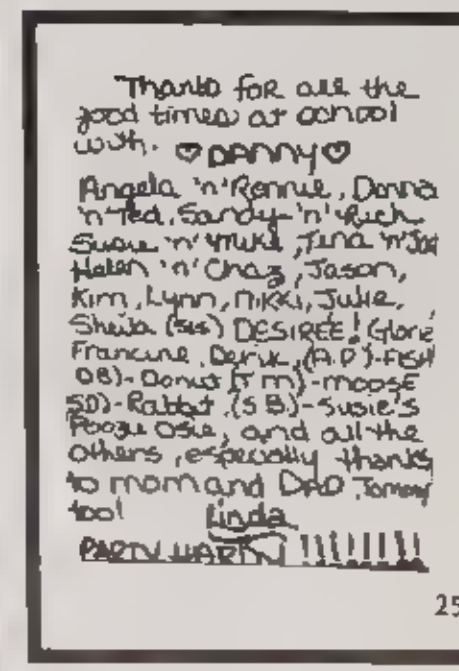 Thanks for all the
good times at school
with. ♡DANNY♡
Angela 'n' Ronnie, Donna
'n' Ted, Sandy 'n' Rich
Susie 'n' Mike, Tina 'n' Joe
Helen 'n' Chaz, Jason,
Kim, Lynn, Nikki, Julie,
Sheila (sis) DESIREE! Glorie
Francine, Derik, (A.P)-FISH
DB)-Donut (T M)-moose
SD)-Rabbit, (S B)-Susie's
and all the
others, especially thanks
to mom and DAD Tommy
too! Linda
PARTY HARTY !!!!!!!
25